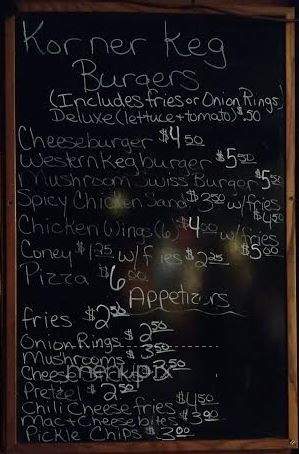 Korner Keg
Burgers
(Includes fries or Onion Rings)
Deluxe (lettuce + tomato) $.50
Cheeseburger $4.50
Western Keg burger $5.50
Mushroom Swiss Burger $5.50
Spicy Chicken Sand. $3.50 w/fries $4.50
Chicken Wings (6) $4.00 w/fries $5.00
Coney $1.25 w/fries $2.25
Pizza $6.00
Appetizers
fries $2.50
Onion Rings $2.50
Mushrooms $3.50
Cheese $3.50
Pretzel $2.50
Chili Cheese fries $4.50
Mac + Cheese bites $3.00
Pickle Chips $3.00